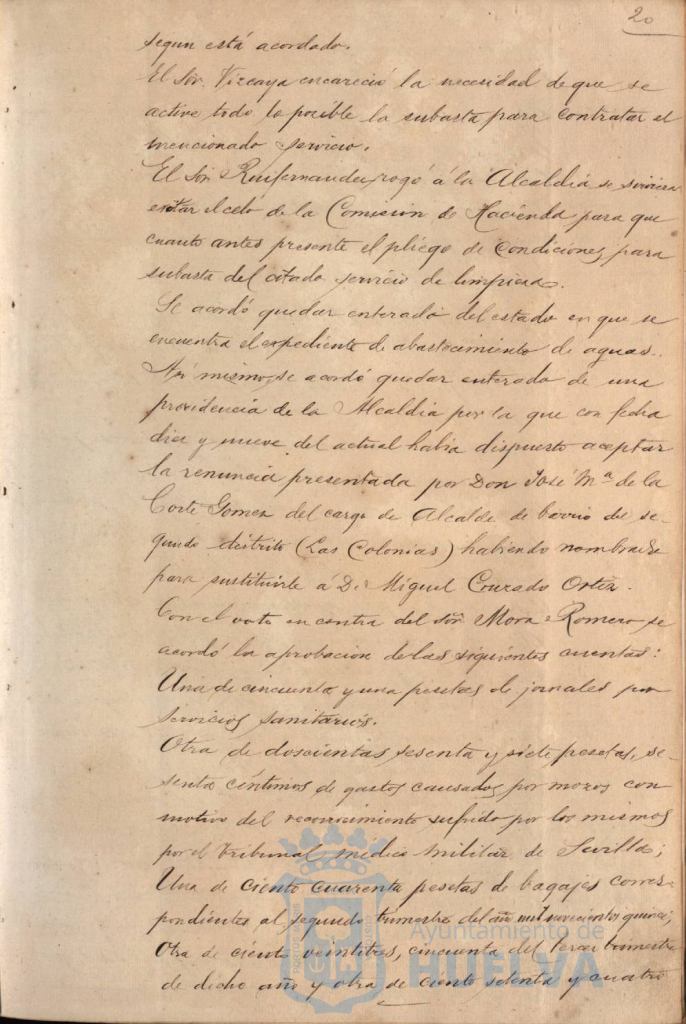 20
segun está acordado.
El Sor. Vizcaya encareció la necesidad de que se
active todo lo posible la subasta para contratar el
mencionado servicio.
El Sor Ruifernandez, rogó á la Alcaldia se sirviera
exitar el celo de la Comision de Hacienda para que
cuanto antes presente el pliego de condiciones para
subasta del citado servicio de limpieza.
Se acordó quedar enterado del estado en que se
encuentra el expediente de abastecimiento de aguas.
Asi mismo, se acordó quedar enterado de una
providencia de la Alcaldia por la que con fecha
diez y nueve del actual habia dispuesto aceptar
la renuncia presentada por Don José Mª de la
Corte Gomez del cargo de Alcalde de barrio del se-
gundo distrito (Las Colonias) habiendo nombrado
para sustituirle á D. Miguel Conzado Ortiz.
Con el voto en contra del Sor Mora Romero se
acordó la aprobacion de las siguientes cuentas:
Una de cincuenta y una pesetas de jornales por
servicios sanitarios.
Otra de doscientas sesenta y siete pesetas, se-
senta céntimos de gastos causados por mozos con
motivo del reconocimiento sufrido por los mismos
por el tribunal médico militar de Sevilla;
Una de ciento cuarenta pesetas de bagajes corres-
pondientes al segundo trimestre del año mil novecientos quince;
Otra de ciento veintitres, cincuenta del tercer trimestre
de dicho año y otra de ciento setenta y cuatro
Ayuntamiento de
HUELVA